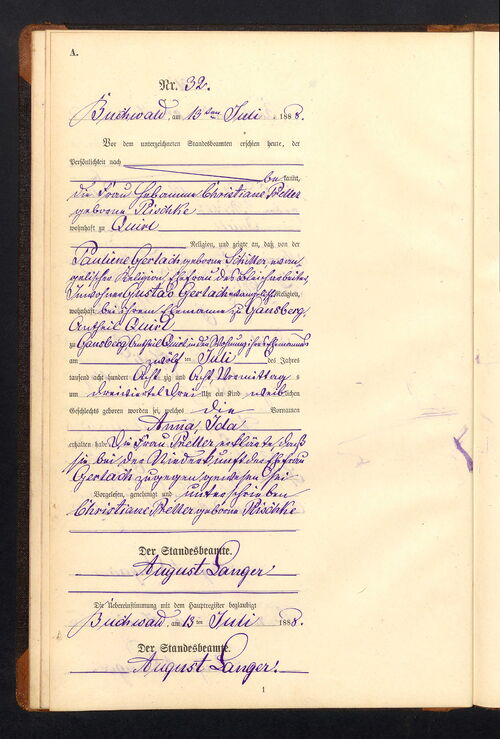 A.
Nr. 32.
Buchwald, am 13ten Juli 1888.
Vor dem unterzeichneten Standesbeamten erschien heute, der
Persönlichkeit nach
bekannt,
die Frau Hebamme Christiane Preller
geborne Rischke
wohnhaft zu Quirl
Religion, und zeigte an, daß von der
Pauline Gerlach geborne Schiller, evan-
gelischer Religion, Ehefrau des Bleicharbeiters,
Inwohner Gustav Gerlach evangelischer Religion,
wohnhaft bei ihrem Ehemanne zu Gansberg,
Antheil Quirl
zu Gansberg, Antheil Quirl in der Wohnung ihres Ehemannes
am zwölften Juli des Jahres
tausend acht hundert Acht zig und Acht, Vormittag s
um dreiviertel Drei Uhr ein Kind weiblichen
Geschlechts geboren worden sei, welches die Vornamen
Anna, Ida
erhalten habe. Die Frau Preller erklärte, daß
sie bei der Niederkunft der Ehefrau
Gerlach zugegen gewesen sei
Vorgelesen, genehmigt und unterschrieben
Christiane Preller geborne Rischke
Der Standesbeamte.
August Langer
Die Uebereinstimmung mit dem Hauptregister beglaubigt
Buchwald, am 13ten Juli 1888.
Der Standesbeamte.
August Langer!
1